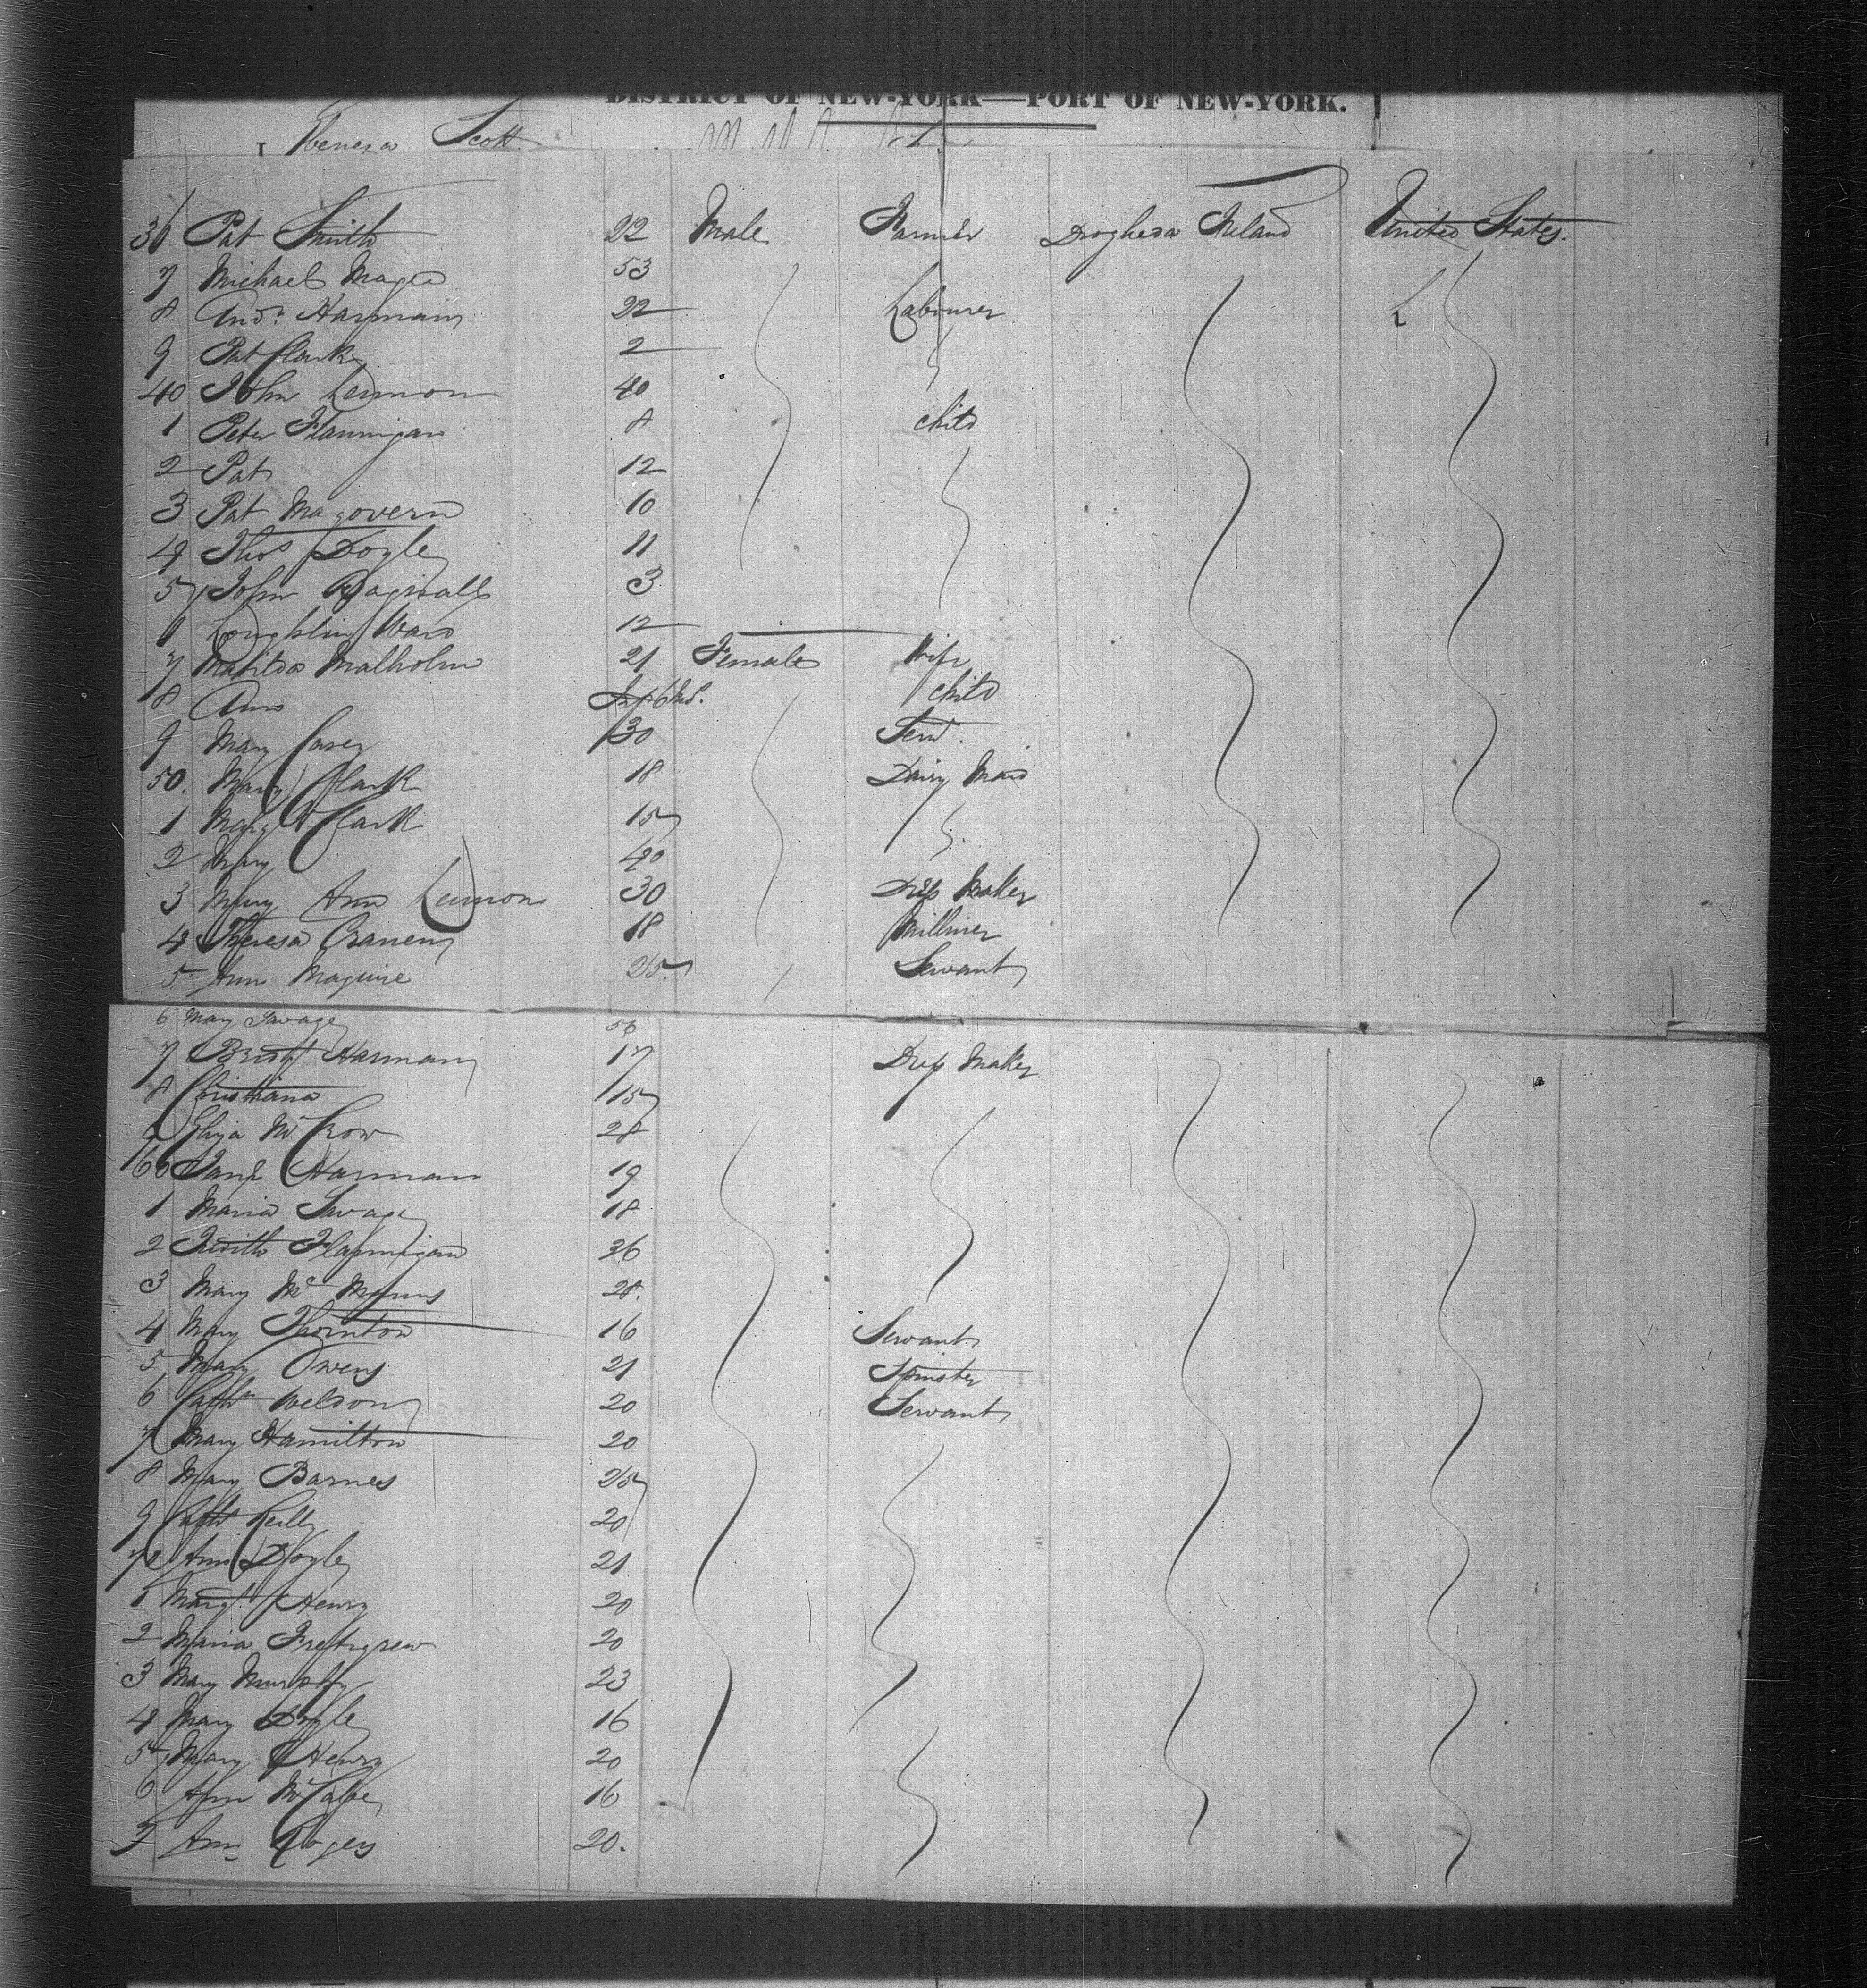 DISTRICT OF NEW-YORK—PORT OF NEW-YORK.
Scott
36 Pat Smith 22 Male Farmer Drogheda Ireland United States.
7 Michael Magee 53
8 And: Harman 22 Labourer
9 Pat Clark 2
40 John Lennon 40
1 Peter Flannigan 8 child
2 Pat 12
3 Pat Magovern 10
4 Thos Doyle 11
5 John Bagnall 3
6 Loughlin Ward 12
7 Matilda Malholm 21 Female Wife
8 Ann Inft 6 Ms. child
9 Mary Casey 30 Servt.
50. Mary Clark 18 Dairy Maid
1 Margt Clark 15
2 Mary 40
3 Mary Ann Lennon 30 Dress Maker
4 Theresa Craneny 18 Milliner
5 Ann Maguire 25 Servant
6 Mary Savage 56
7 Bridgt Harman 17 Dress Maker
8 Christiana 15
9 Eliza McCrow 28
60 Jane Harman 19
1 Maria Savage 18
2 Judith Flannigan 26
3 Mary Mc Manus 28.
4 Mary Thornton 16 Servant
5 Mary Owens 21 Spinster
6 Cathn Weldon 20 Servant
7 Mary Hamilton 20
8 Mary Barnes 25
9 Cath Reilly 20
70 Ann Doyle 21
1 Margt. Henry 20
2 Maria 20
3 Mary Murphy 23
4 Mary Doyle 16
5 Mary Henry 20
6 Ann McCabe 16
7 Ann Rogers 20.